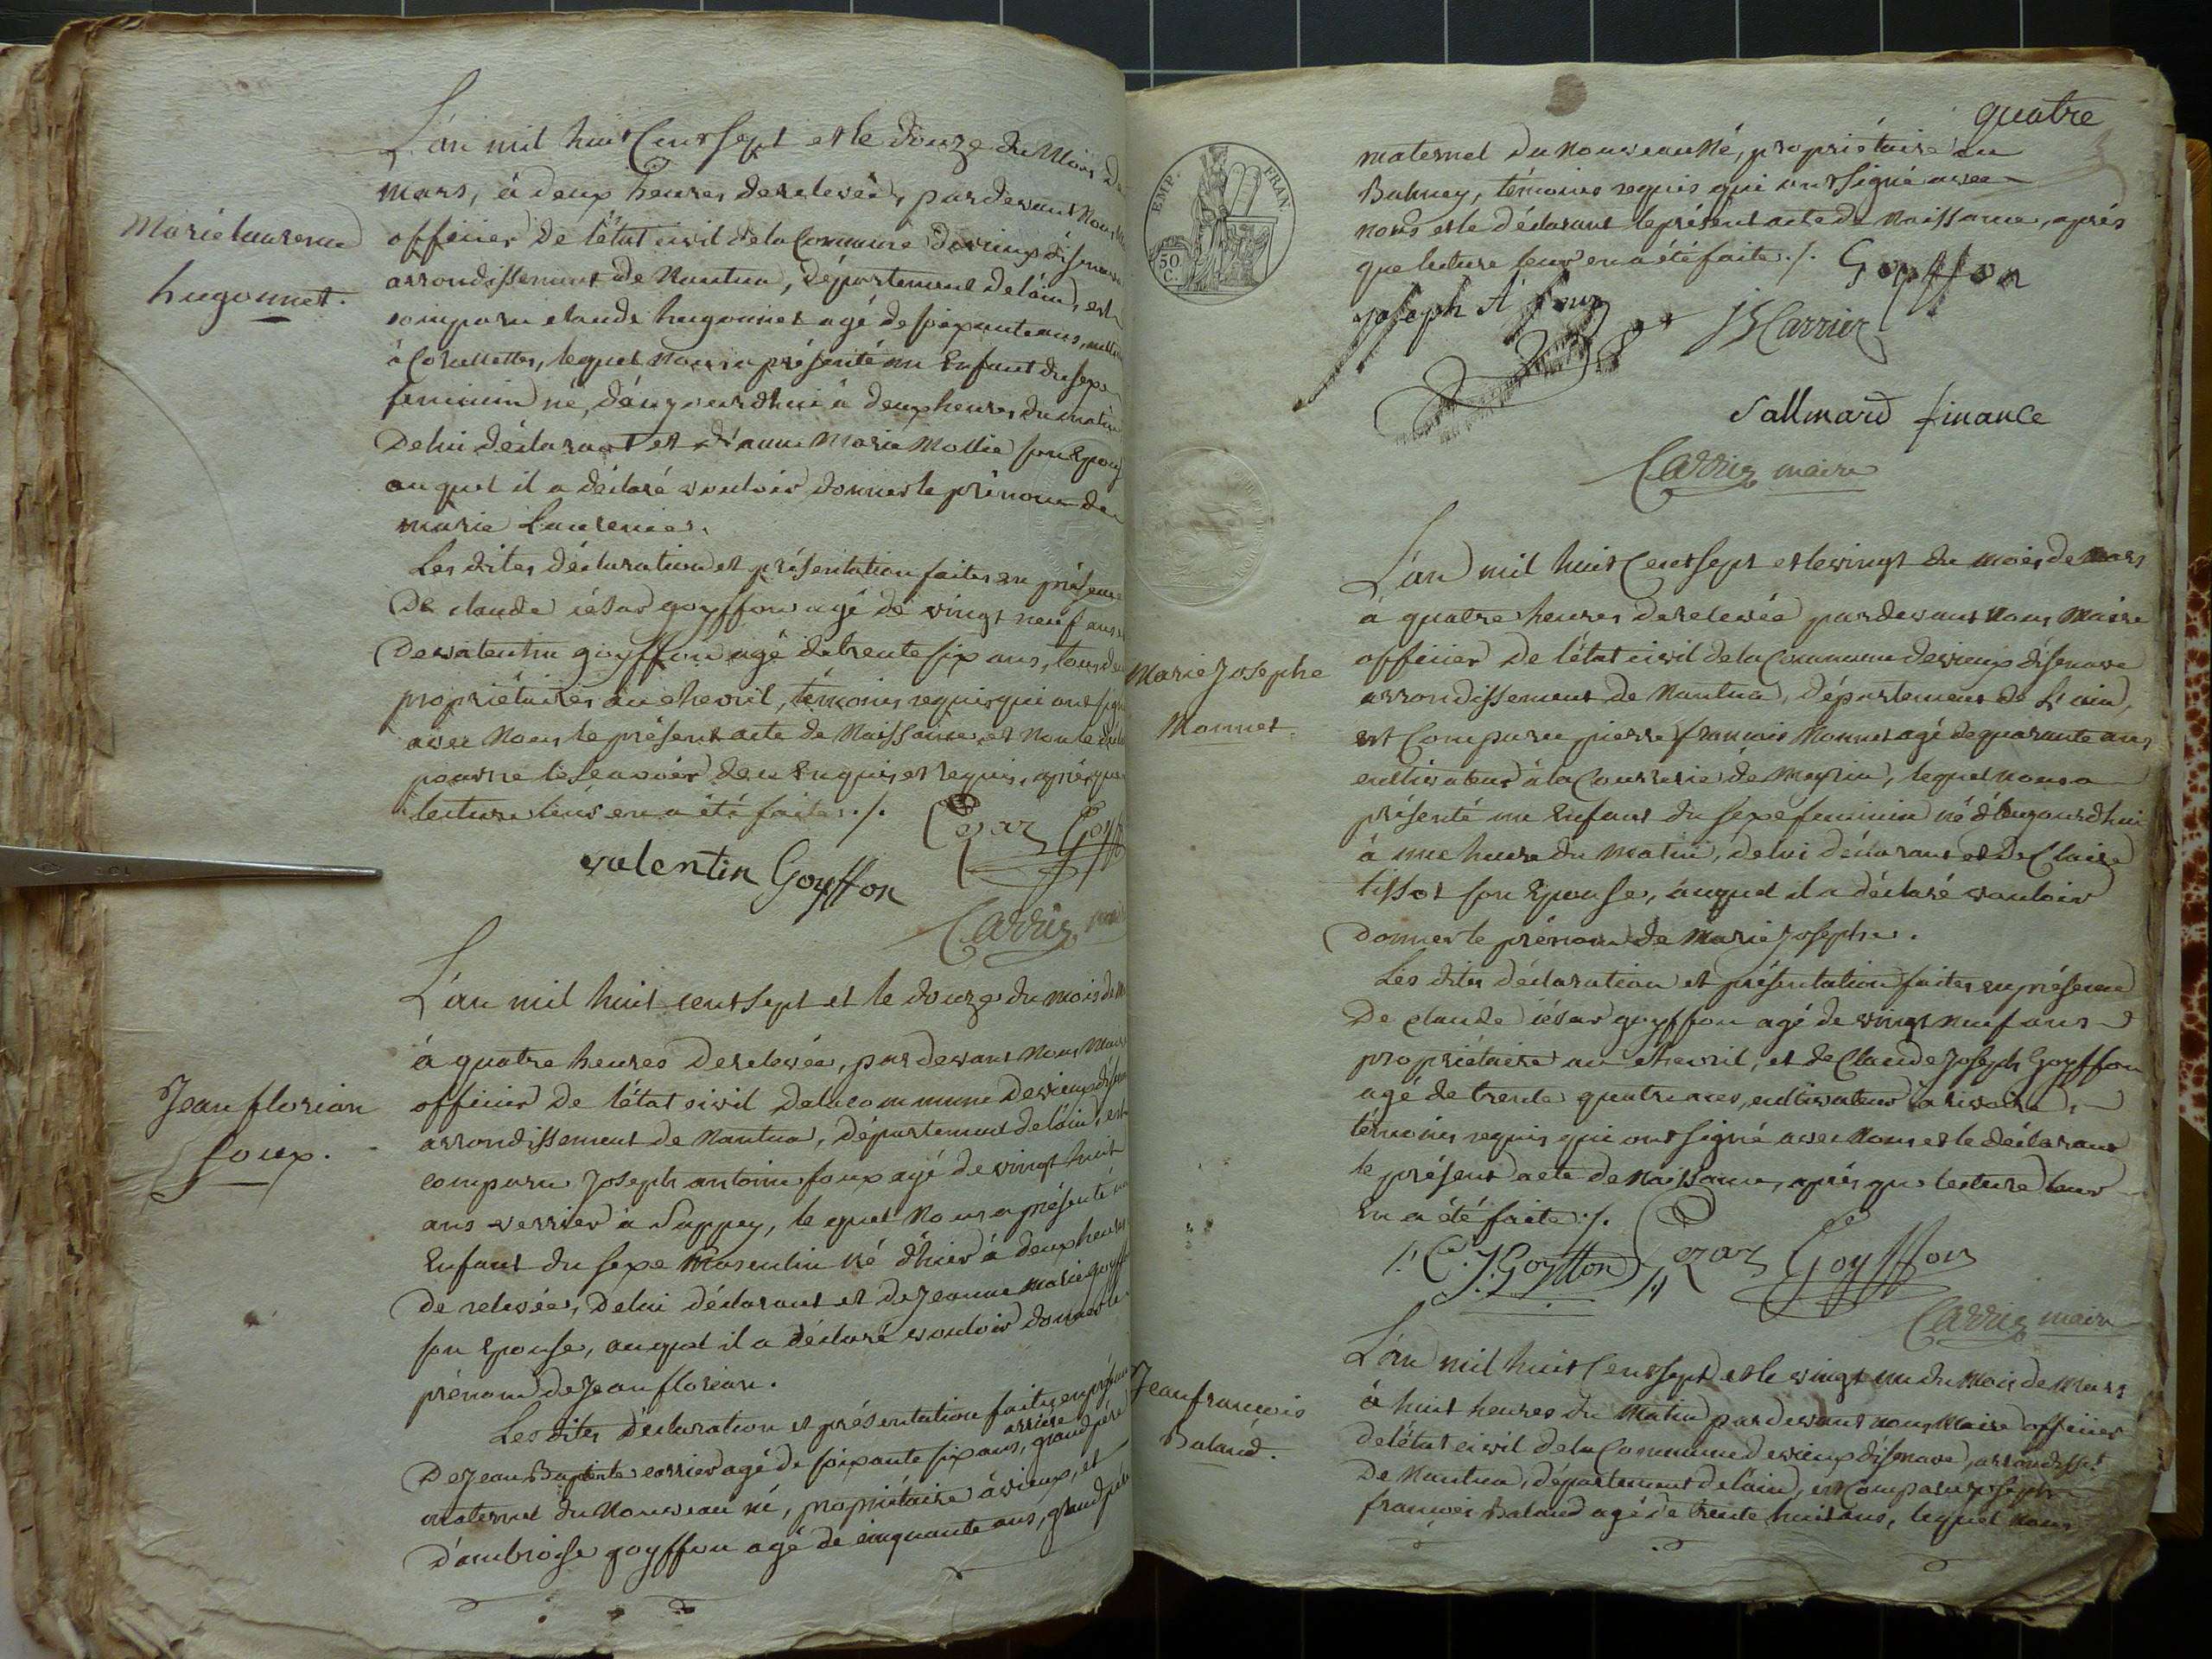 L'an mil huit Cent sept et le douze du Mois de
mars, à deux heures de relevée, pardevant Nous
officier de l'état civil de la Commune devieux disenave
arrondissement de Nantua, département de l'ain, est
comparu claude hugonnet agé de soixante ans,
à Corcellettes, lequel Nous a présenté un Enfant du sexe
feminin né, d'aujourdhui à deux heures du matin
De lui déclarant et d'anne Marie Mollie son Epouse
auquel il a déclaré vouloir donner le prénom de
marie Laurence.
Marie laurence
hugonnet.
Les dites déclaration et présentation faites en présence
De claude césar goyffon agé de vingt neuf ans
De valentin goyffon agé de trente six ans, tous deux
propriétaires au chevril, témoins requis qui ont signé
avec Nous le présent acte de Naissance, et Non le
pour ne le savoir de ce Enquis et requis, après que
lecture leur en a été faite ./.
Cezar Goyff
valentin Goyffon
Carrier maire
L'an mil huit cent sept et le douze du mois de
à quatre heures de relevée, pardevant Nous Maire
officier de l'état civil de la commune Devieux disenave
arrondissement de Nantua, département de l'ain, est
comparu Joseph antoine foux agé de vingt huit
ans verrier à Suppey, le quel Nous a présenté un
Enfant du sexe Masculin Né d'hier à deux heures
de relevée, De lui déclarant et de Jeanne Marie goyff
son Epouse, auquel il a déclaré vouloir donner le
prénom de Jean florian.
Jean florian
foux.
Les dites déclaration et présentation faites en présence
De Jean Baptiste carrier agé de soixante six ans, arrière grand père
maternel du Nouveau né, propriétaire à vieux, et
D'ambroise goyffon agé de cinquante ans, grand père
quatre
EMP. FRAN
50 C.
maternel du Nouveau Né, propriétaire au
Balmey, témoins requis qui ont signé avec
nous et le déclarant le présent acte de Naissance, après
que lecture leur en a été faite ./. Goyffon
Joseph A foux
JB Carrier
Sallmard finance
Carrier maire
L'an mil huit Cent sept et le vingt du mois de Mars
à quatre heures de relevée pardevant Nous Maire
officier De l'état civil de la Commune devieux disenave
arrondissement de Nantua, département de L'ain,
est Comparu pierre françois Monnet agé de quarante ans
cultivateur à la Couvrerie de Meyria, lequel nous a
présenté un Enfant du sexe feminin né d'aujourdhui
à une heure du Matin, de lui déclarant et de Claire
tissot son Epouse, auquel il a déclaré vouloir
Donner le prénom de Marie Josephe.
Marie Josephe
Monnet.
Les dites déclaration et présentation faites en présence
De claude césar goyffon agé de vingt neuf ans
propriétaire au chevril, et de Claude Joseph Goyffon
agé de trente quatre ans, cultivateur à rivoire,
témoins requis qui ont signé avec Nous et le déclarant
le présent acte de Naissance, après que lecture leur
En a été faite ./.
C. J. Goyffon Cezar Goyffon
Carrier maire
L'an mil huit Cent sept et le vingt un du Mois de Mars
à huit heures du Matin pardevant nous Maire officier
De l'état civil de la Commune devieux disenave, arrondisst
De Nantua, département de l'ain, est Comparu joseph
françois Baland agé de trente huit ans, lequel nous
Jean francois
Baland.